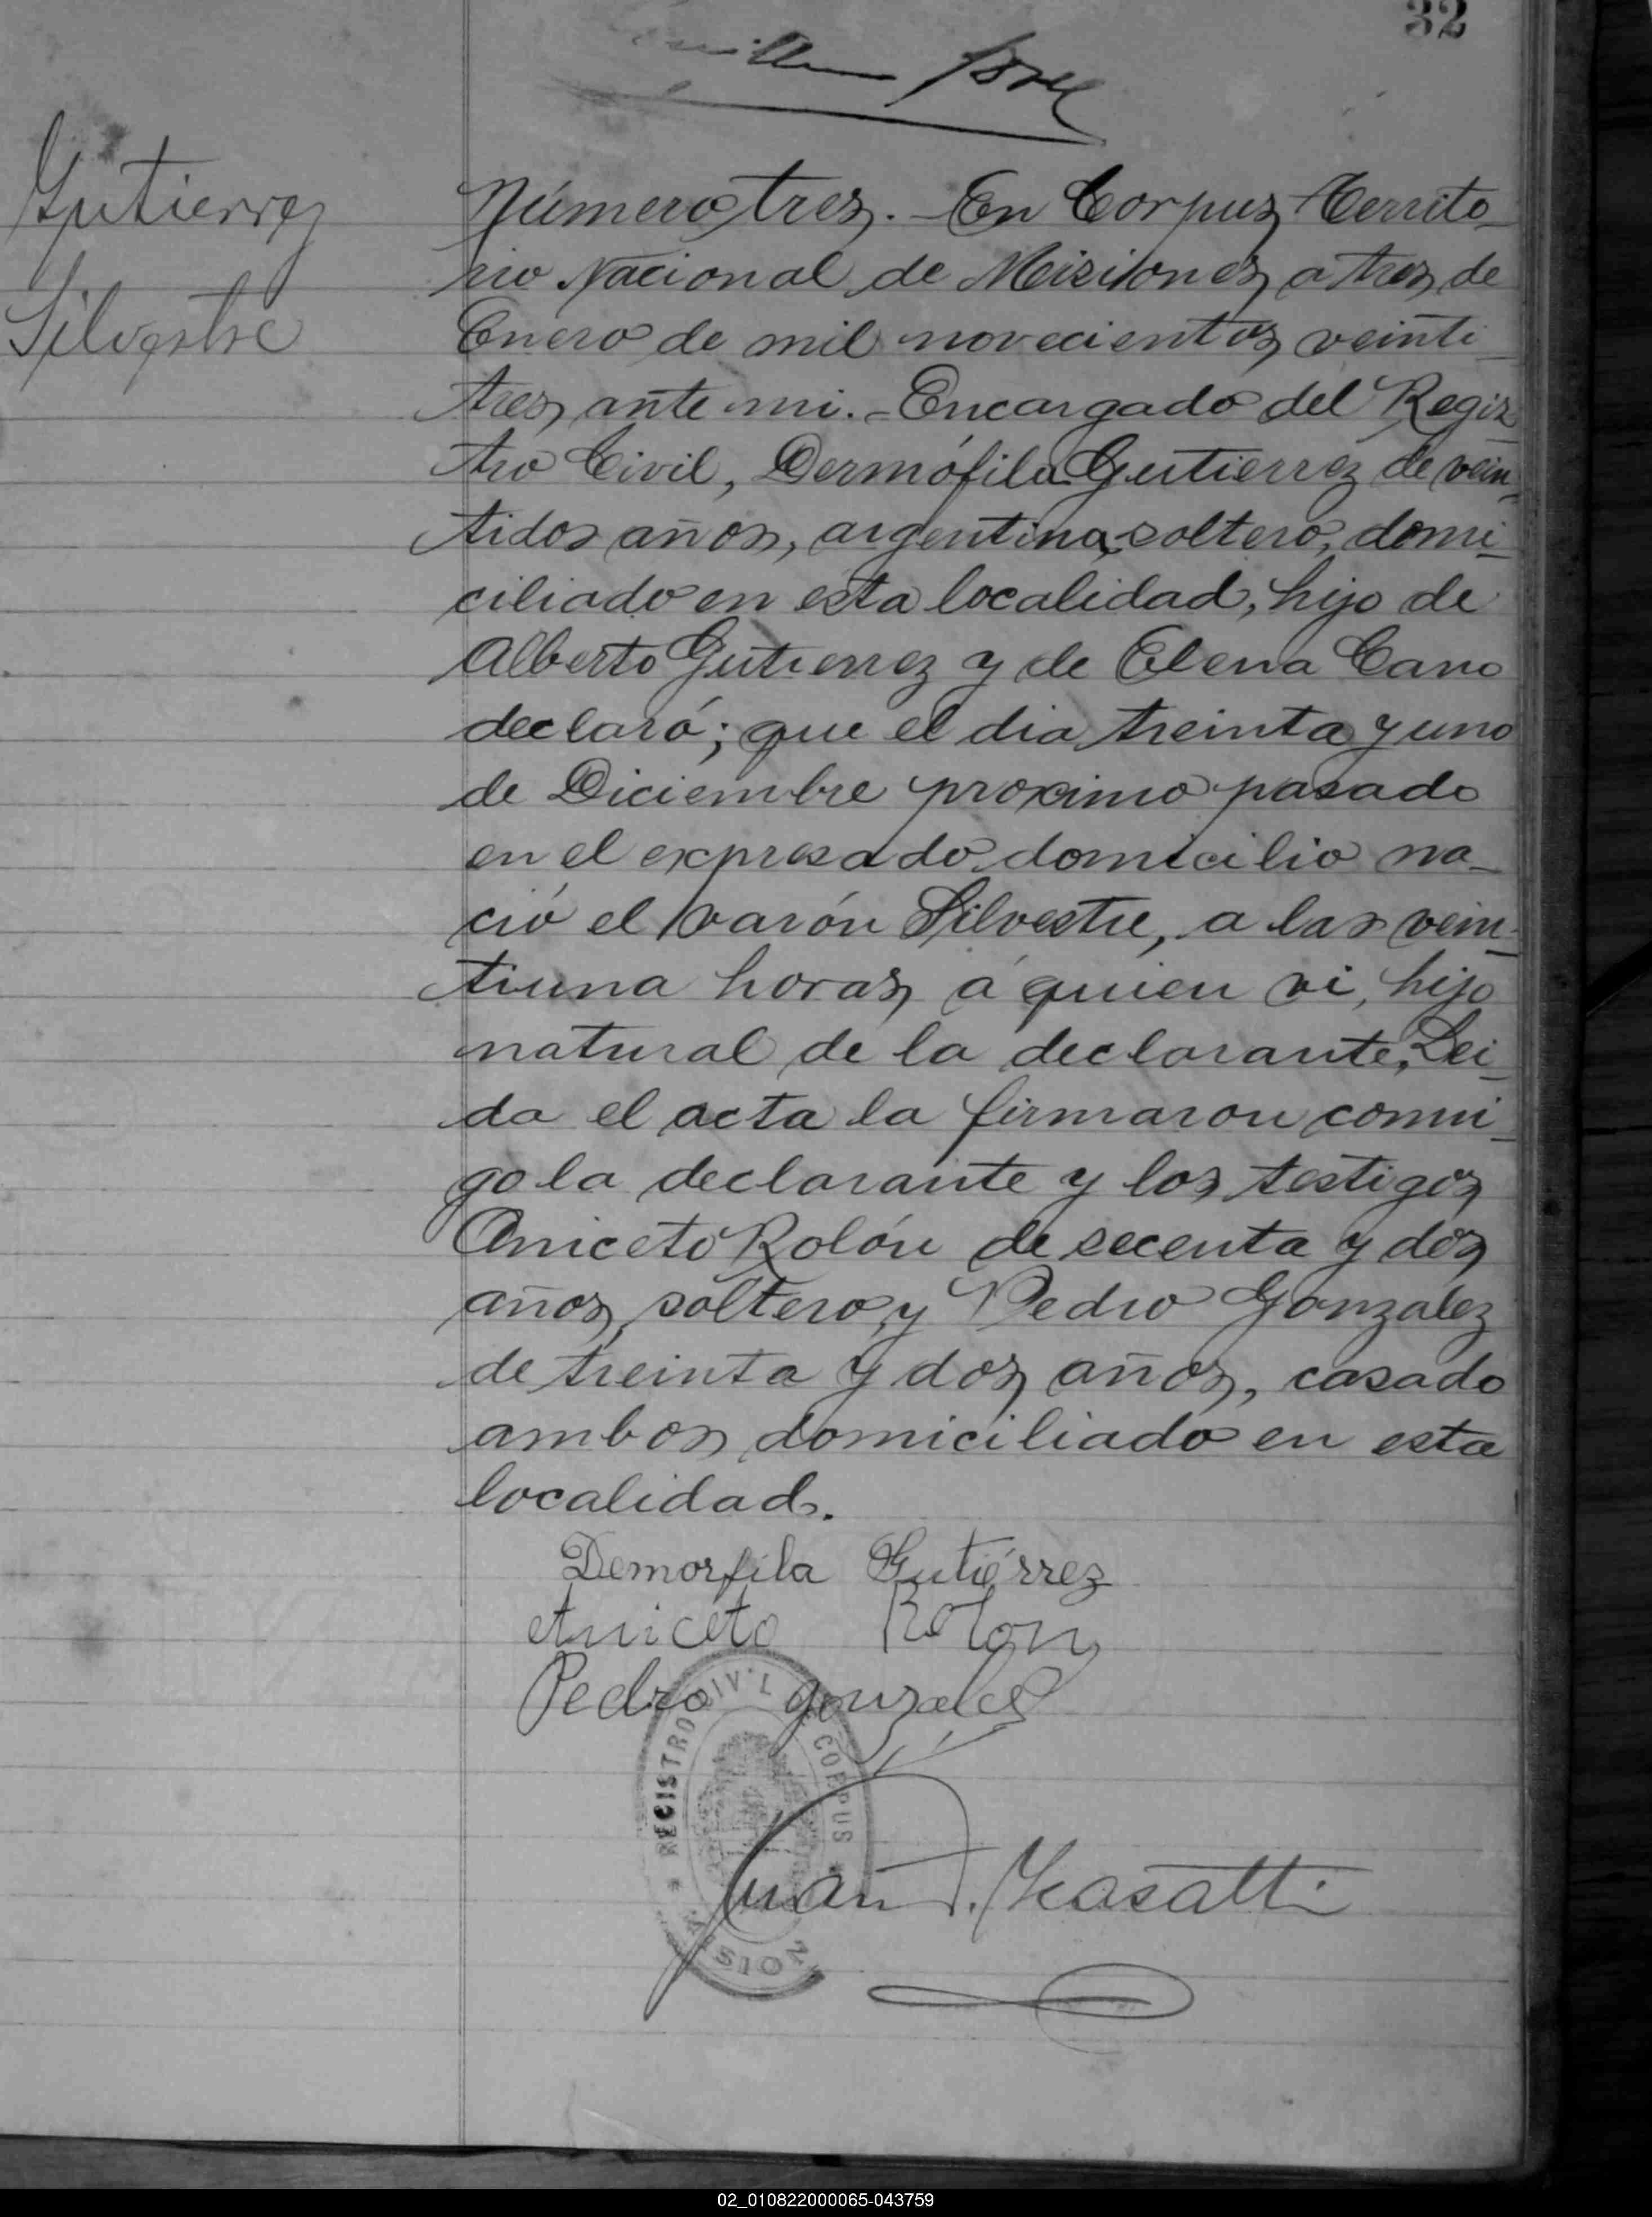 32
Gutierrez
Silvestre
Número tres. - En Corpus Territo-
rio Nacional de Misiones, a tres de
Enero de mil novecientos veinti-
tres, ante mi. - Encargado del Regis-
tro Civil, Dermófila Gutierrez de vein-
tidos años, argentina, soltero, domi-
ciliado en esta localidad, hijo de
Alberto Gutierrez y de Elena Cano
declaró; que el dia treinta y uno
de Diciembre proximo pasado
en el expresado domicilio na-
ció el varón Silvestre, a las vein-
tiuna horas, á quien vi, hijo
natural de la declarante. Lei-
da el acta la firmaron conmi-
go la declarante y los testigos
Aniceto Rolón de secenta y dos
años, soltero, y Pedro Gonzalez
de treinta y dos años, casado
ambos domiciliado en esta
localidad.
Demorfila Gutiérrez
Aniceto Rolon
Pedro gonzales
REGISTRO CIVIL CORPUS MISIONES
Juan
02_010822000065-043759